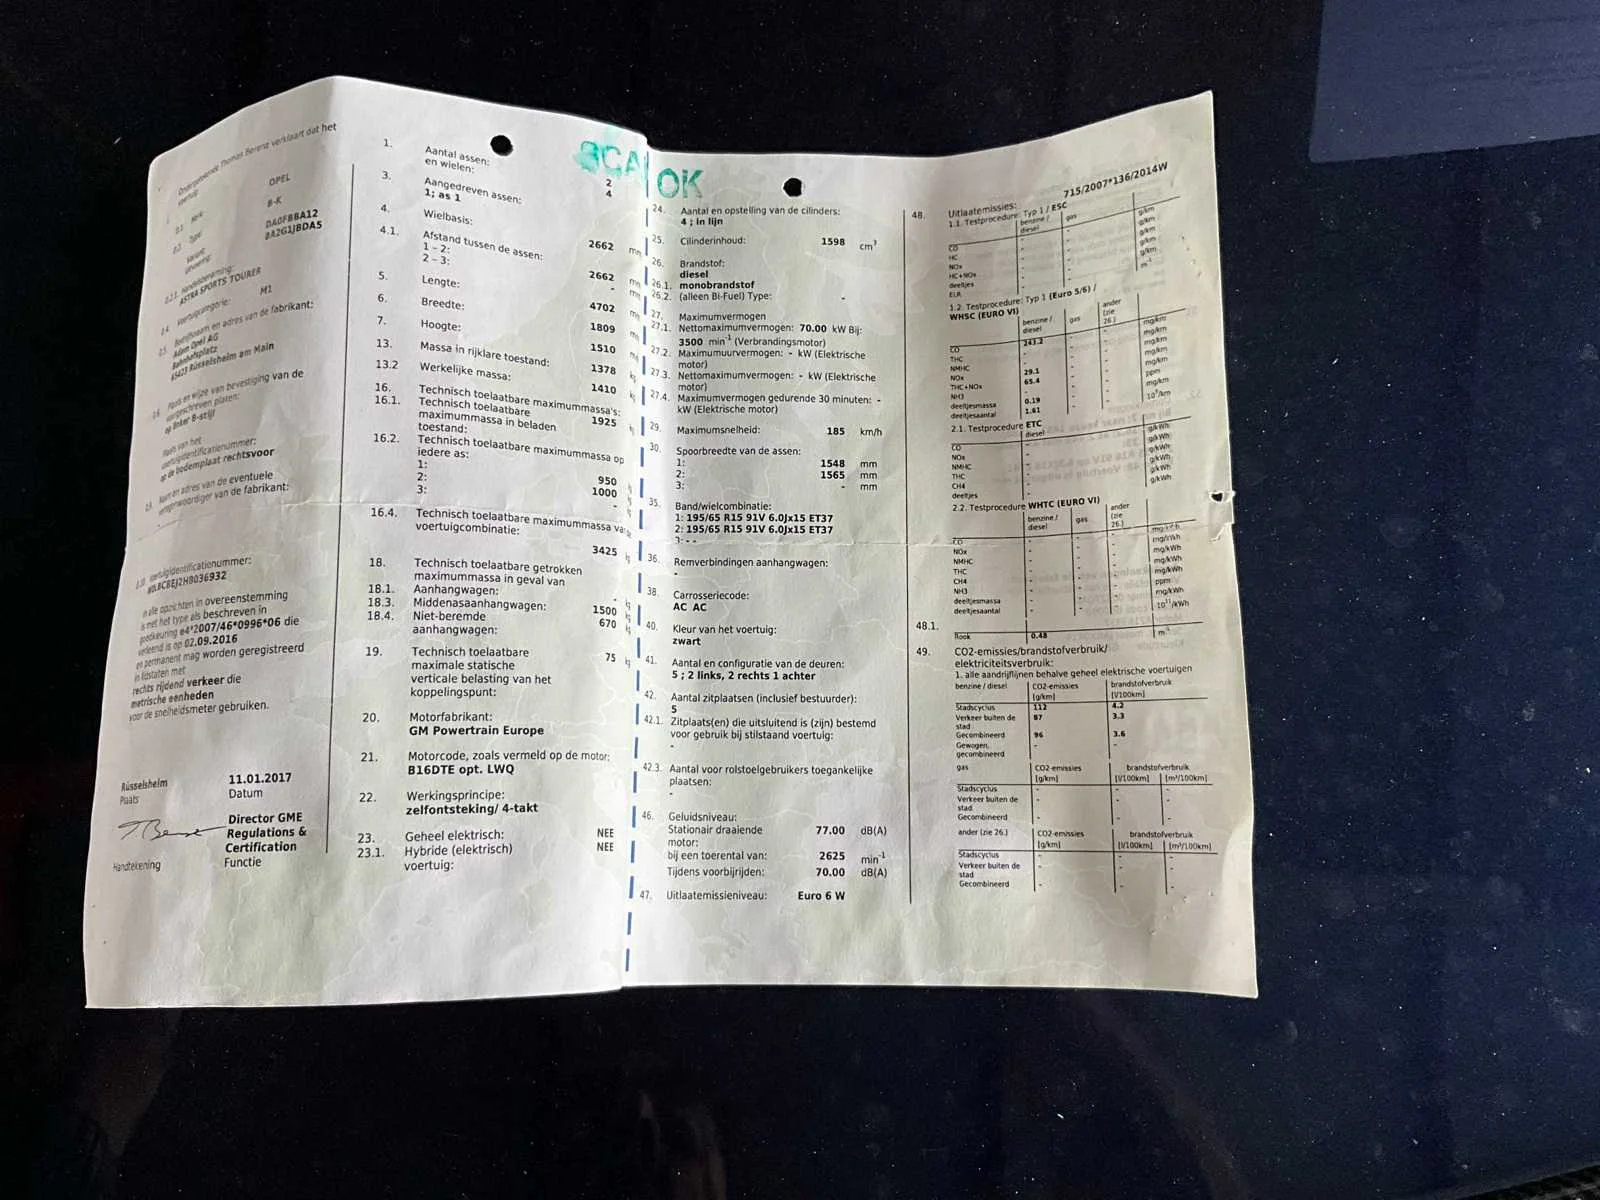 Ondergetekende Thomas Berenz verklaart dat het
voertuig
0.1 Merk: OPEL
0.2. Type: B-K
Variant: DA0FBBA12
Uitvoering: BA2G1JBDA5
0.2.1. Handelsbenaming:
ASTRA SPORTS TOURER
0.4. Voertuigcategorie: M1
0.5. Bedrijfsnaam en adres van de fabrikant:
Adam Opel AG
Bahnhofsplatz
65423 Rüsselsheim am Main
0.6. Plaats en wijze van bevestiging van de
voorgeschreven platen:
op linker B-stijl
Plaats van het
voertuigidentificatienummer:
op de bodemplaat rechtsvoor
0.9. Naam en adres van de eventuele
vertegenwoordiger van de fabrikant:
-
0.10 Voertuigidentificatienummer:
W0LBC8EJ2H8036932
in alle opzichten in overeenstemming
is met het type als beschreven in
goedkeuring e4*2007/46*0996*06 die
verleend is op 02.09.2016
en permanent mag worden geregistreerd
in lidstaten met
rechts rijdend verkeer die
metrische eenheden
voor de snelheidsmeter gebruiken.
Rüsselsheim 11.01.2017
Plaats Datum
Director GME
Regulations &
Certification
Handtekening Functie
SCAN OK
1. Aantal assen: 2
en wielen: 4
3. Aangedreven assen:
1; as 1
4. Wielbasis: 2662 mm
4.1. Afstand tussen de assen:
1 - 2: 2662 mm
2 - 3: - mm
5. Lengte: 4702 mm
6. Breedte: 1809 mm
7. Hoogte: 1510 mm
13. Massa in rijklare toestand: 1378 kg
13.2 Werkelijke massa: 1410 kg
16. Technisch toelaatbare maximummassa's:
16.1. Technisch toelaatbare
maximummassa in beladen 1925 kg
toestand:
16.2. Technisch toelaatbare maximummassa op
iedere as:
1: 950
2: 1000
3: -
16.4. Technisch toelaatbare maximummassa van
voertuigcombinatie:
3425 kg
18. Technisch toelaatbare getrokken
maximummassa in geval van
18.1. Aanhangwagen: -
18.3. Middenasaanhangwagen: 1500 kg
18.4. Niet-beremde 670 kg
aanhangwagen:
19. Technisch toelaatbare 75 kg
maximale statische
verticale belasting van het
koppelingspunt:
20. Motorfabrikant:
GM Powertrain Europe
21. Motorcode, zoals vermeld op de motor:
B16DTE opt. LWQ
22. Werkingsprincipe:
zelfontsteking/ 4-takt
23. Geheel elektrisch: NEE
23.1. Hybride (elektrisch) NEE
voertuig:
24. Aantal en opstelling van de cilinders:
4 ; in lijn
25. Cilinderinhoud: 1598 cm³
26. Brandstof:
diesel
26.1. monobrandstof
26.2. (alleen Bi-Fuel) Type: -
27. Maximumvermogen
27.1. Nettomaximumvermogen: 70.00 kW Bij:
3500 min⁻¹ (Verbrandingsmotor)
27.2. Maximumuurvermogen: - kW (Elektrische
motor)
27.3. Nettomaximumvermogen: - kW (Elektrische
motor)
27.4. Maximumvermogen gedurende 30 minuten: -
kW (Elektrische motor)
29. Maximumsnelheid: 185 km/h
30. Spoorbreedte van de assen:
1: 1548 mm
2: 1565 mm
3: - mm
35. Band/wielcombinatie:
1: 195/65 R15 91V 6.0Jx15 ET37
2: 195/65 R15 91V 6.0Jx15 ET37
3: - -
36. Remverbindingen aanhangwagen:
-
38. Carrosseriecode:
AC AC
40. Kleur van het voertuig:
zwart
41. Aantal en configuratie van de deuren:
5 ; 2 links, 2 rechts 1 achter
42. Aantal zitplaatsen (inclusief bestuurder):
5
42.1. Zitplaats(en) die uitsluitend is (zijn) bestemd
voor gebruik bij stilstaand voertuig:
-
42.3. Aantal voor rolstoelgebruikers toegankelijke
plaatsen:
-
46. Geluidsniveau:
Stationair draaiende 77.00 dB(A)
motor:
bij een toerental van: 2625 min⁻¹
Tijdens voorbijrijden: 70.00 dB(A)
47. Uitlaatemissieniveau: Euro 6 W
48. Uitlaatemissies: 715/2007*136/2014W
1.1. Testprocedure: Typ 1 / ESC
benzine / diesel gas
CO - - g/km
HC - - g/km
NOx - - g/km
HC+NOx - - g/km
deeltjes - - g/km
ELR - - m⁻¹
1.2. Testprocedure: Typ 1 (Euro 5/6) /
WHSC (EURO VI)
benzine / diesel gas ander (zie 26.)
CO 243.2 - - mg/km
THC - - - mg/km
NMHC - - - mg/km
NOx 29.1 - - mg/km
THC+NOx 65.4 - - mg/km
NH3 - - - ppm
deeltjesmassa 0.19 - - mg/km
deeltjesaantal 1.61 - -
2.1. Testprocedure ETC
diesel
CO - - g/kWh
NOx - - g/kWh
NMHC - - g/kWh
THC - - g/kWh
CH4 - - g/kWh
deeltjes - - g/kWh
2.2. Testprocedure WHTC (EURO VI)
benzine / diesel gas ander (zie 26.)
CO - - - mg/kWh
NOx - - - mg/kWh
NMHC - - - mg/kWh
THC - - - mg/kWh
CH4 - - - mg/kWh
NH3 - - - ppm
deeltjesmassa - - - mg/kWh
deeltjesaantal - - - 10¹¹/kWh
48.1. Rook 0.48 m⁻¹
49. CO2-emissies/brandstofverbruik/
elektriciteitsverbruik:
1. alle aandrijflijnen behalve geheel elektrische voertuigen
benzine / diesel CO2-emissies [g/km] brandstofverbruik [l/100km]
Stadscyclus 112 4.2
Verkeer buiten de stad 87 3.3
Gecombineerd 96 3.6
Gewogen, gecombineerd - -
gas CO2-emissies brandstofverbruik
[g/km] [l/100km] [m³/100km]
Stadscyclus - - -
Verkeer buiten de stad - - -
Gecombineerd - - -
ander (zie 26.) CO2-emissies brandstofverbruik
[g/km] [l/100km] [m³/100km]
Stadscyclus - - -
Verkeer buiten de stad - - -
Gecombineerd - - -